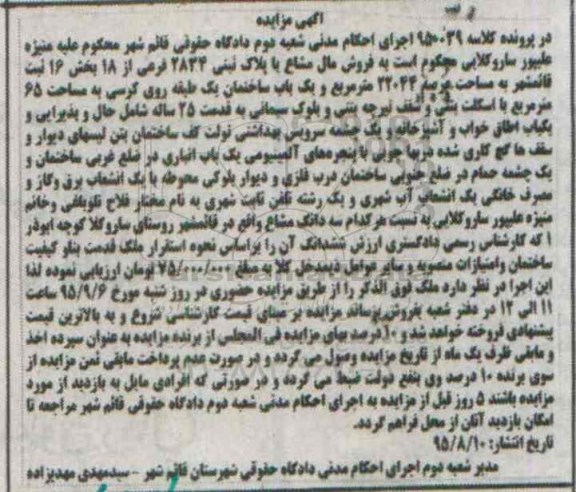 آگهی مزایده
در پرونده کلاسه ۹۵۰۰۳۹ اجرای احکام مدنی شعبه دوم دادگاه حقوقی قائم شهر محکوم علیه منیژه
علیپور ساروکلایی محکوم است به فروش مال مشاع با پلاک ثبتی ۲۸۳۴ فرعی از ۱۸ بخش ۱۶ ثبت
قائمشهر به مساحت عرصه ۲۲۰۴۴ مترمربع و یک باب ساختمان یک طبقه روی کرسی به مساحت ۶۵
مترمربع با اسکلت بتنی و سقف تیرچه بتنی و بلوک سیمانی به قدمت ۲۵ ساله شامل حال و پذیرایی و
یکباب اطاق خواب و آشپزخانه و یک چشمه سرویس بهداشتی تولت کف ساختمان بتن لیسهای دیوار و
سقف ها گچ کاری شده دربها چوبی با پنجره‌های آلمینیومی یک باب انباری در ضلع غربی ساختمان و
یک چشمه حمام در ضلع جنوبی ساختمان درب فلزی و دیوار بلوکی محوطه با یک انشعاب برق وگاز و
مصرف خانگی یک انشعاب آب شهری و یک رشته تلفن ثابت شهری به نام مختار فلاح تلوباغی وخانم
منیژه علیپور ساروکلایی به نسبت هرکدام سه دانگ مشاع واقع در قائمشهر روستای ساروکلا کوچه ابوذر
۱ که کارشناس رسمی دادگستری ارزش ششدانگ آن را براساس نحوه استقرار ملک قدمت بناو کیفیت
ساختمان وامتیازات منصوبه و سایر عوامل ذیمدخل کلا به مبلغ ۷۵/۰۰۰/۰۰۰ تومان ارزیابی نموده لذا
این اجرا در نظر دارد ملک فوق الذکر را از طریق مزایده حضوری در روز شنبه مورخ ۹۵/۹/۶ ساعت
۱۱ الی ۱۲ در دفتر شعبه بفروش برساند مزایده بر مبنای قیمت کارشناسی شروع و به بالاترین قیمت
پیشنهادی فروخته خواهد شد و ۱۰درصد بهای مزایده فی المجلس از برنده مزایده به عنوان سپرده اخذ
و مابقی ظرف یک ماه از تاریخ مزایده وصول می گردد و در صورت عدم پرداخت مابقی ثمن مزایده از
سوی برنده ۱۰ درصد وی بنفع دولت ضبط می گردد و در صورتی که افرادی مایل به بازدید از مورد
مزایده باشند ۵ روز قبل از مزایده به اجرای احکام مدنی شعبه دوم دادگاه حقوقی قائم شهر مراجعه تا
امکان بازدید آنان از محل فراهم گردد.
تاریخ انتشار: ۹۵/۸/۱۰
مدیر شعبه دوم اجرای احکام مدنی دادگاه حقوقی شهرستان قائم شهر - سیدمهدی مهدیزاده